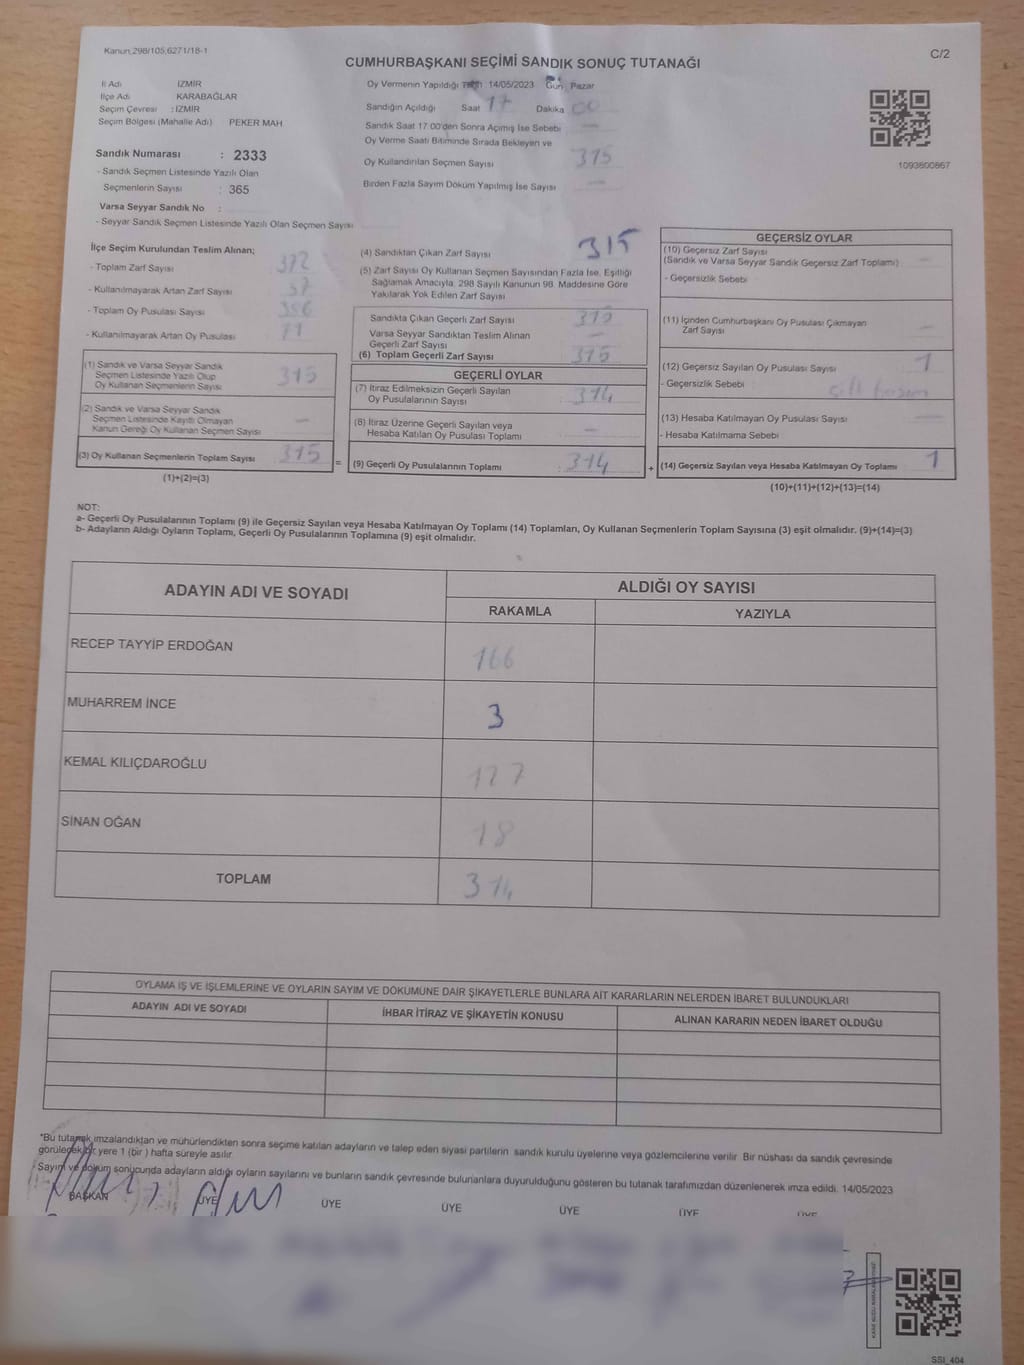 Kanun,298/105,6271/18-1
C/2
CUMHURBAŞKANI SEÇİMİ SANDIK SONUÇ TUTANAĞI
İl Adı İZMİR
İlçe Adı KARABAĞLAR
Seçim Çevresi : İZMİR
Seçim Bölgesi (Mahalle Adı) PEKER MAH
Sandık Numarası : 2333
- Sandık Seçmen Listesinde Yazılı Olan
Seçmenlerin Sayısı : 365
Varsa Seyyar Sandık No :
- Seyyar Sandık Seçmen Listesinde Yazılı Olan Seçmen Sayısı
Oy Vermenin Yapıldığı 14/05/2023 Gün Pazar
Sandığın Açıldığı Saat 17 Dakika 00
Sandık Saat 17:00'den Sonra Açımış İse Sebebi —
Oy Verme Saati Bitiminde Sırada Bekleyen ve
Oy Kullandırılan Seçmen Sayısı 315
Birden Fazla Sayım Döküm Yapılmış İse Sayısı —
1093800867
İlçe Seçim Kurulundan Teslim Alınan;
- Toplam Zarf Sayısı 372
- Kullanılmayarak Artan Zarf Sayısı 57
- Toplam Oy Pusulası Sayısı 386
- Kullanılmayarak Artan Oy Pusulası 71
(1) Sandık ve Varsa Seyyar Sandık
Seçmen Listesinde Yazılı Olup
Oy Kullanan Seçmenlerin Sayısı 315
(2) Sandık ve Varsa Seyyar Sandık
Seçmen Listesinde Kayıtlı Olmayan
Kanun Gereği Oy Kullanan Seçmen Sayısı —
(3) Oy Kullanan Seçmenlerin Toplam Sayısı 315
(1)+(2)=(3)
=
(4) Sandıktan Çıkan Zarf Sayısı 315
(5) Zarf Sayısı Oy Kullanan Seçmen Sayısından Fazla İse, Eşitliği
Sağlamak Amacıyla, 298 Sayılı Kanunun 98. Maddesine Göre
Yakılarak Yok Edilen Zarf Sayısı
Sandıkta Çıkan Geçerli Zarf Sayısı 315
Varsa Seyyar Sandıktan Teslim Alınan
Geçerli Zarf Sayısı —
(6) Toplam Geçerli Zarf Sayısı 315
GEÇERLİ OYLAR
(7) İtiraz Edilmeksizin Geçerli Sayılan
Oy Pusulalarının Sayısı 314
(8) İtiraz Üzerine Geçerli Sayılan veya
Hesaba Katılan Oy Pusulası Toplamı —
(9) Geçerli Oy Pusulalarının Toplamı : 314
+
GEÇERSİZ OYLAR
(10) Geçersiz Zarf Sayısı
(Sandık ve Varsa Seyyar Sandık Geçersiz Zarf Toplamı) —
- Geçersizlik Sebebi
(11) İçinden Cumhurbaşkanı Oy Pusulası Çıkmayan
Zarf Sayısı —
(12) Geçersiz Sayılan Oy Pusulası Sayısı 1
- Geçersizlik Sebebi çift basım
(13) Hesaba Katılmayan Oy Pusulası Sayısı —
- Hesaba Katılmama Sebebi
(14) Geçersiz Sayılan veya Hesaba Katılmayan Oy Toplamı 1
(10)+(11)+(12)+(13)=(14)
NOT:
a- Geçerli Oy Pusulalarının Toplamı (9) ile Geçersiz Sayılan veya Hesaba Katılmayan Oy Toplamı (14) Toplamları, Oy Kullanan Seçmenlerin Toplam Sayısına (3) eşit olmalıdır. (9)+(14)=(3)
b- Adayların Aldığı Oyların Toplamı, Geçerli Oy Pusulalarının Toplamına (9) eşit olmalıdır.
ADAYIN ADI VE SOYADI ALDIĞI OY SAYISI
RAKAMLA YAZIYLA
RECEP TAYYİP ERDOĞAN 166
MUHARREM İNCE 3
KEMAL KILIÇDAROĞLU 127
SİNAN OĞAN 18
TOPLAM 314
OYLAMA İŞ VE İŞLEMLERİNE VE OYLARIN SAYIM VE DÖKÜMÜNE DAİR ŞİKAYETLERLE BUNLARA AİT KARARLARIN NELERDEN İBARET BULUNDUKLARI
ADAYIN ADI VE SOYADI İHBAR İTİRAZ VE ŞİKAYETİN KONUSU ALINAN KARARIN NEDEN İBARET OLDUĞU
*Bu tutanak imzalandıktan ve mühürlendikten sonra seçime katılan adayların ve talep eden siyasi partilerin sandık kurulu üyelerine veya gözlemcilerine verilir. Bir nüshası da sandık çevresinde
görülecek bir yere 1 (bir) hafta süreyle asılır.
Sayım ve döküm sonucunda adayların aldığı oyların sayılarını ve bunların sandık çevresinde bulunanlara duyurulduğunu gösteren bu tutanak tarafımızdan düzenlenerek imza edildi. 14/05/2023
BAŞKAN ÜYE ÜYE ÜYE ÜYE ÜYE ÜYE
SSI_404